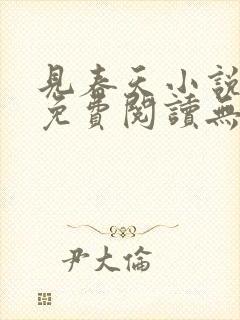 見春天小說
免費閱讀無
尹大倫